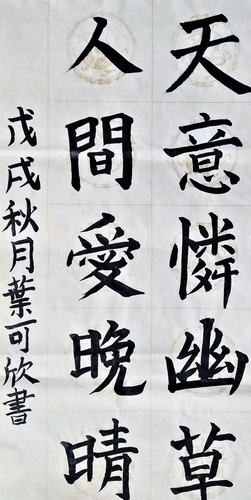 天意憐幽草
人間愛晚晴
戊戌秋月葉可欣書